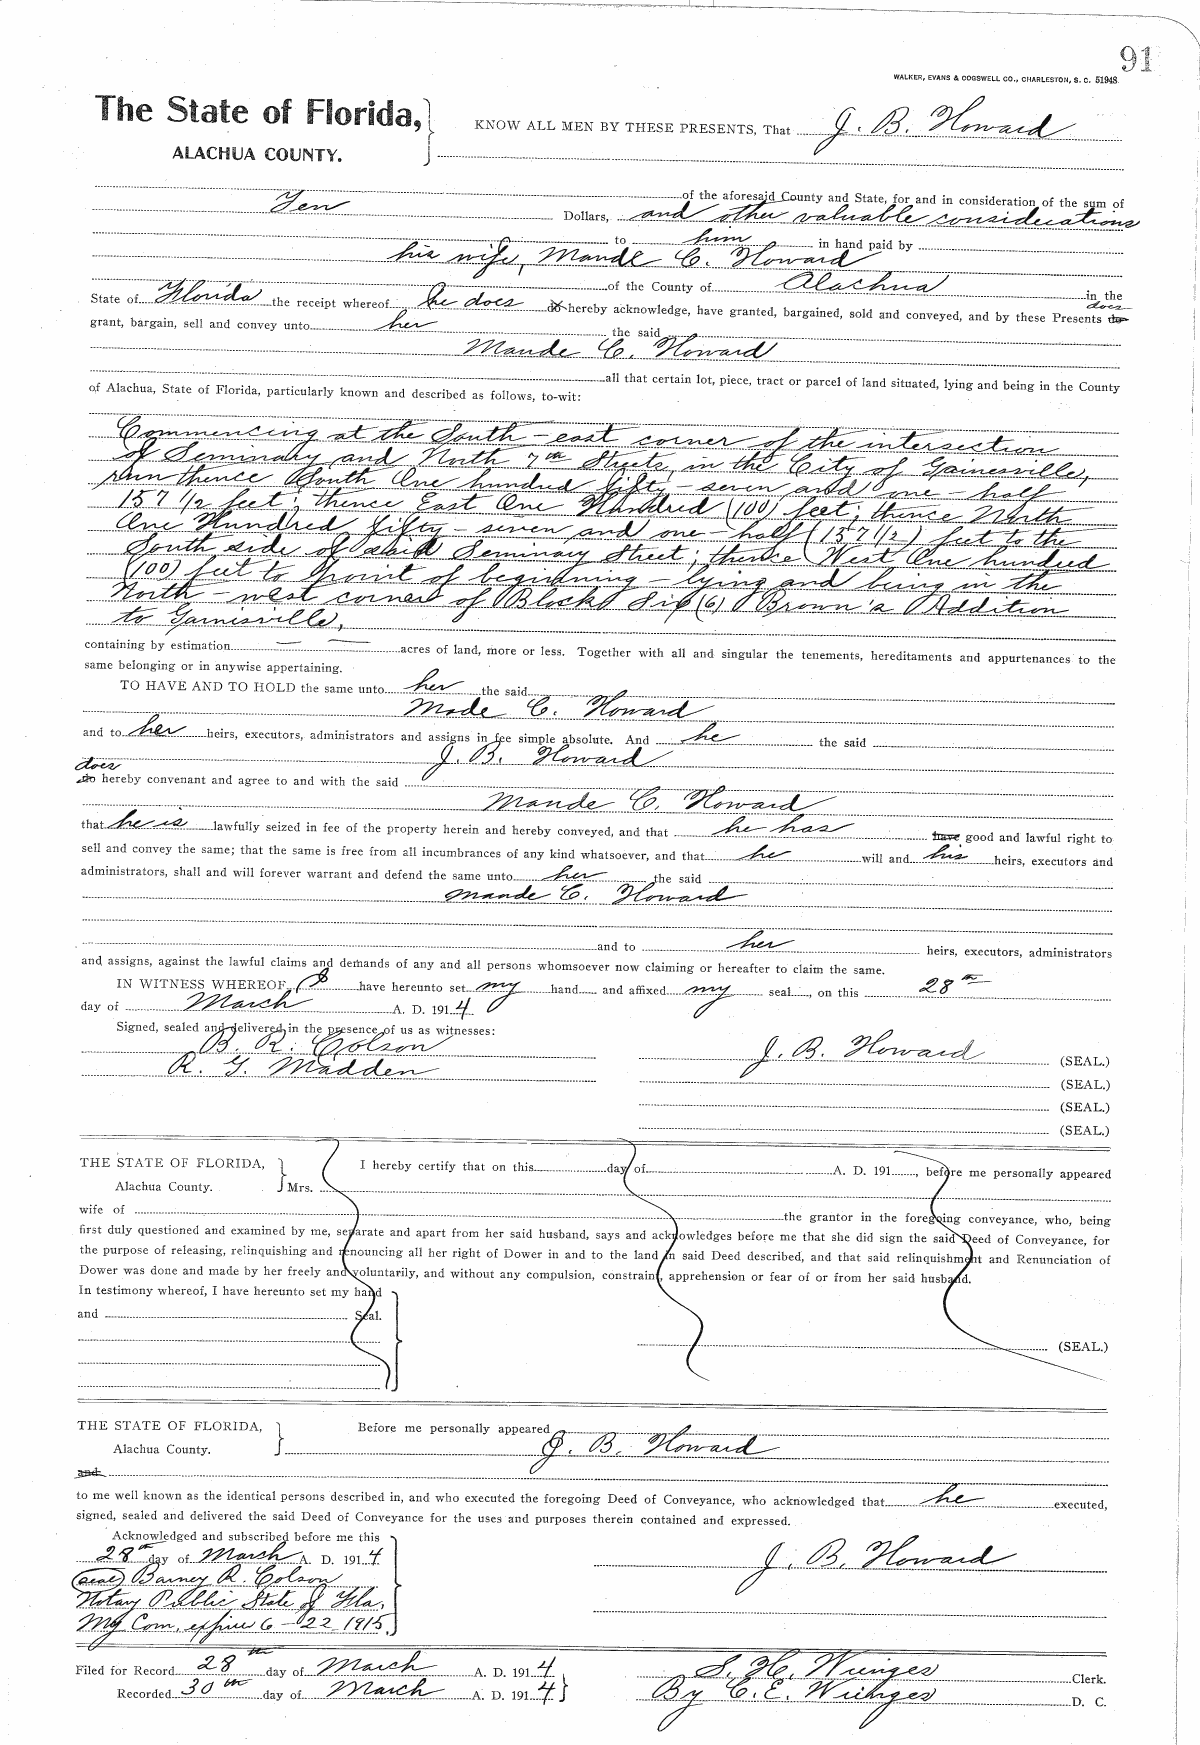 91
WALKER, EVANS & COGSWELL CO., CHARLESTON, S. C. 51948
The State of Florida,
ALACHUA COUNTY.
KNOW ALL MEN BY THESE PRESENTS, That J. B. Howard
of the aforesaid County and State, for and in consideration of the sum of
Ten Dollars, and other valuable considerations
to him in hand paid by
his wife, Maude C. Howard
of the County of Alachua in the
State of Florida the receipt whereof he does do hereby acknowledge, have granted, bargained, sold and conveyed, and by these Presents do does
grant, bargain, sell and convey unto her the said
Maude C. Howard
all that certain lot, piece, tract or parcel of land situated, lying and being in the County
of Alachua, State of Florida, particularly known and described as follows, to-wit:
Commencing at the South-east corner of the intersection
of Seminary and North 7th Streets, in the City of Gainesville,
run thence South One hundred fifty-seven and one-half
157 1/2 feet; thence East One Hundred (100) feet; thence North
One Hundred fifty-seven and one-half (157 1/2) feet to the
South side of said Seminary Street; thence West One hundred
(100) feet to point of beginning - lying and being in the
North-west corner of Block Six (6) Brown's Addition
to Gainisville,
containing by estimation — — acres of land, more or less. Together with all and singular the tenements, hereditaments and appurtenances to the
same belonging or in anywise appertaining.
TO HAVE AND TO HOLD the same unto her the said
Made C. Howard
and to her heirs, executors, administrators and assigns in fee simple absolute. And he the said
J. B. Howard
does
do hereby convenant and agree to and with the said
Maude C. Howard
that he is lawfully seized in fee of the property herein and hereby conveyed, and that he has have good and lawful right to
sell and convey the same; that the same is free from all incumbrances of any kind whatsoever, and that he will and his heirs, executors and
administrators, shall and will forever warrant and defend the same unto her the said
Maude C. Howard
and to her heirs, executors, administrators
and assigns, against the lawful claims and demands of any and all persons whomsoever now claiming or hereafter to claim the same.
IN WITNESS WHEREOF, I have hereunto set my hand and affixed my seal, on this 28th
day of March A. D. 1914
Signed, sealed and delivered in the presence of us as witnesses:
B. R. Colson
J. B. Howard (SEAL.)
R. G. Madden
(SEAL.)
(SEAL.)
(SEAL.)
THE STATE OF FLORIDA,
Alachua County.
I hereby certify that on this day of A. D. 191 , before me personally appeared
Mrs.
wife of the grantor in the foregoing conveyance, who, being
first duly questioned and examined by me, separate and apart from her said husband, says and acknowledges before me that she did sign the said Deed of Conveyance, for
the purpose of releasing, relinquishing and renouncing all her right of Dower in and to the land in said Deed described, and that said relinquishment and Renunciation of
Dower was done and made by her freely and voluntarily, and without any compulsion, constraint, apprehension or fear of or from her said husband.
In testimony whereof, I have hereunto set my hand
and Seal.
(SEAL.)
THE STATE OF FLORIDA,
Alachua County.
Before me personally appeared
J. B. Howard
and
to me well known as the identical persons described in, and who executed the foregoing Deed of Conveyance, who acknowledged that he executed,
signed, sealed and delivered the said Deed of Conveyance for the uses and purposes therein contained and expressed.
Acknowledged and subscribed before me this
28th day of March A. D. 1914
J. B. Howard
(seal) Barney R. Colson
Notary Public State of Fla.
My Com. expires 6-22 1915.
Filed for Record 28th day of March A. D. 1914
S. H. Wienges Clerk.
Recorded 30th day of March A. D. 1914
By C. E. Wienges D. C.